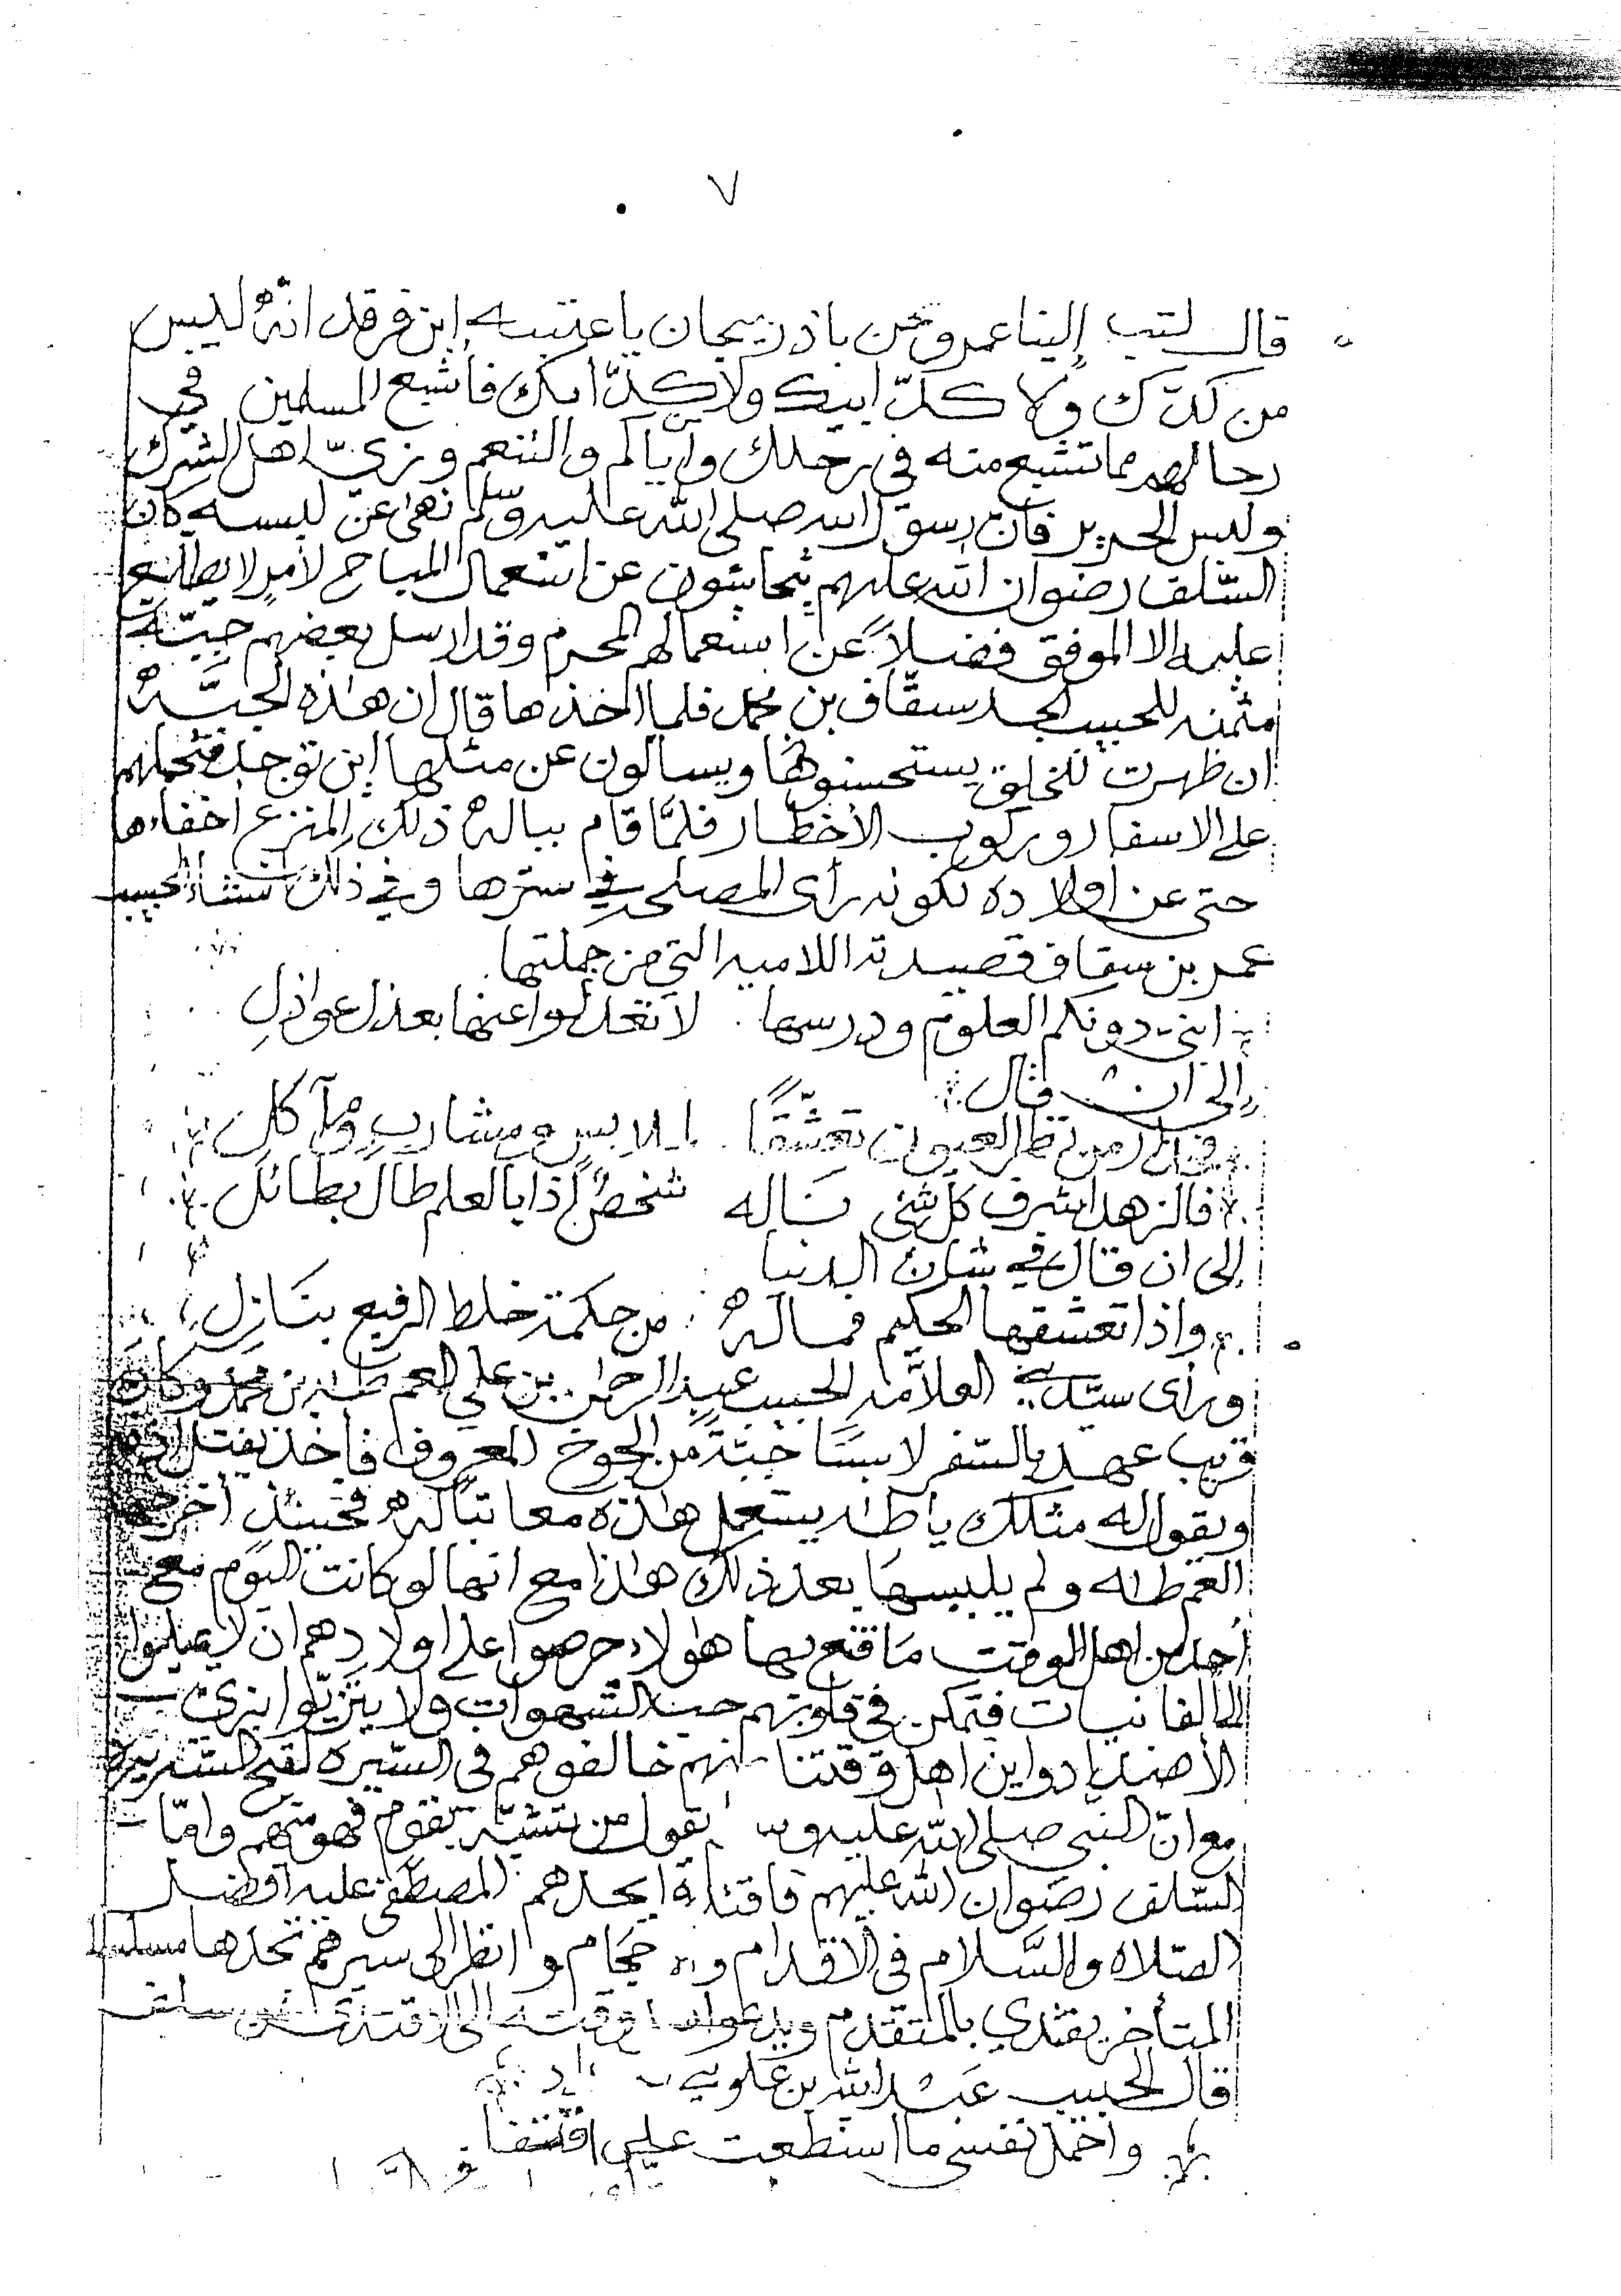 ٧
قال كتب إلينا عمر ونحن باذربيجان يا عتبه ابن فرقد انهُ ليس
من كدّك ولا كدّ ابيك ولا كدّ امك فأشبع المسلمين في
رحالهم مما تشبع منه في رحلك وايّاكم والتنعم وزيّ اهل الشرك
ولبس الحرير فان رسول الله صلى الله عليه وسلم نهى عن لبسه كان
السّلف رضوان الله عليهم يتحاشون عن استعمال المباح لأمرٍ لا يطلع
عليه الا الموفق فضلاً عن استعمالهم المحرم وقد ارسل بعضهم جبّة
مثمنه للحبيب الجد سقّاف بن محمد فلما اخذها قال ان هذه الجبَّة
ان ظهرت للخلق يستحسنوها ويسالون عن مثلها اين توجد فتحملهم
على الاسفار وركوب الأخطار فلمَّا قام ببالهُ ذلك المنزع اخفاءها
حتى عن اولاده لكونه رأى المصلحه في سترها وفي ذلك انشاء الحبيب
عمر بن سقاف قصيدته اللاميه التي من جملتها
ابني دونكم العلوم ودرسها . لا تعدلوا عنها بعذل عواذلِ
إلى ان قال
من نظر العيون تعشّقًا . بملابس ومشاربٍ ومآكلِ
فالزهد اشرف كل شئ ناله شخصٌ إذا بالعلم طال بطائل
إلى ان قال في شان الدنيا
واذا تعشقها الحكيم فمالهُ من حكمة خلط الرفيع بنازلِ
ورأى سيّدي العلاّمه الحبيب عبد الرحمن بن علي العم طه بن محمد وكان
قريب عهد بالسّفر لابسًا جبةً من الجوخ المعروف فاخذ يفتل اذنه
ويقول له مثلك يا طه يستعمل هذه معاتبًا لهُ فحينئذٍ اخرجها
العم طه ولم يلبسها بعد ذلك هذا مع انها لو كانت اليوم مع
أحد من اهل الوقت مَا قنع بها هؤلاء حرصوا على اولادهم ان لا يميلوا
الى الفانيات فتمكن في قلوبهم حب الشهوات ولا يتزيّوا بزي
الأضداد واين اهل وقتنا منهم خالفوهم في السّيره لقبح السّريره
مع انّ النبي صلى الله عليه وس يقول من تشبّه بقوم فهو منهم وامّا
السّلف رضوان الله عليهم فاقتداة احدهم المصطفى عليه افضل
الصّلاه والسَّلام في الأقدام والاحجام وانظر الى سيرهم تجدها مسلسلة
المتأخر يقتدي بالمتقدم ويدعو اهل وقته الى الاقتدى بمن سلف
قال الحبيب عبد الله بن علوي
واحمل نفسي ما استطعت على اقتفا